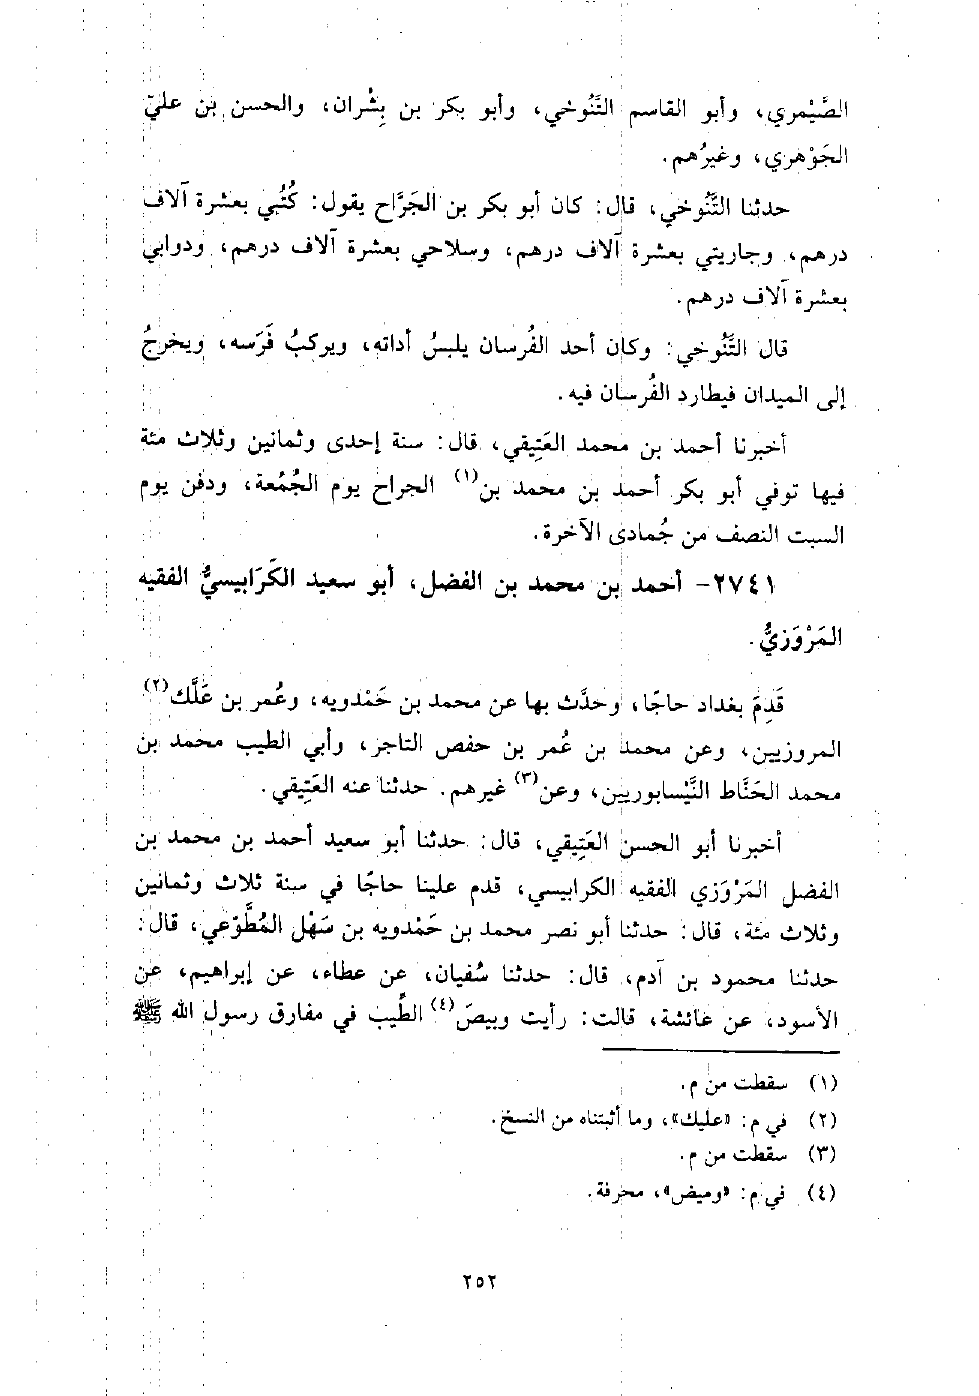 الصَّيْمري، وأبو القاسم التَّنُوخي، وأبو بكر بن بِشْران، والحسن بن عليّ
الجَوْهري، وغيرُهم.
حدثنا التَّنُوخي، قال: كان أبو بكر بن الجَرَّاح يقول: كُتُبي بعشرة آلاف
درهم، وجاريتي بعشرة آلاف درهم، وسلاحي بعشرة آلاف درهم، ودوابي
بعشرة آلاف درهم.
قال التَّنُوخي: وكان أحد الفُرسان يلبسُ أداته، ويركبُ فَرَسه، ويخرجُ
إلى الميدان فيطارد الفُرسان فيه.
أخبرنا أحمد بن محمد العَتِيقي، قال: سنة إحدى وثمانين وثلاث مئة
فيها توفي أبو بكر أحمد بن محمد بن(١) الجراح يوم الجُمُعة، ودفن يوم
السبت النصف من جُمادى الآخرة.
٢٧٤١- أحمد بن محمد بن الفضل، أبو سعيد الكَرَابيسيُّ الفقيه
المَرْوَزيُّ.
قَدِمَ بغداد حاجًا، وحدَّث بها عن محمد بن حَمْدويه، وعُمر بن عَلَّك(٢)
المروزيين، وعن محمد بن عُمر بن حفص التاجر، وأبي الطيب محمد بن
محمد الحَنَّاط النَّيْسابوريين، وعن(٣) غيرهم. حدثنا عنه العَتِيقي.
أخبرنا أبو الحسن العَتِيقي، قال: حدثنا أبو سعيد أحمد بن محمد بن
الفضل المَرْوَزي الفقيه الكرابيسي، قدم علينا حاجًا في سنة ثلاث وثمانين
وثلاث مئة، قال: حدثنا أبو نصر محمد بن حَمْدويه بن سَهْل المُطَّوِّعي، قال:
حدثنا محمود بن آدم، قال: حدثنا سُفيان، عن عطاء، عن إبراهيم، عن
الأسود، عن عائشة، قالت: رأيت وبيصَ(٤) الطِّيب في مفارق رسول الله ﷺ
(١) سقطت من م.
(٢) في م: «عليك»، وما أثبتناه من النسخ.
(٣) سقطت من م.
(٤) في م: «وميض»، محرفة.
٢٥٢